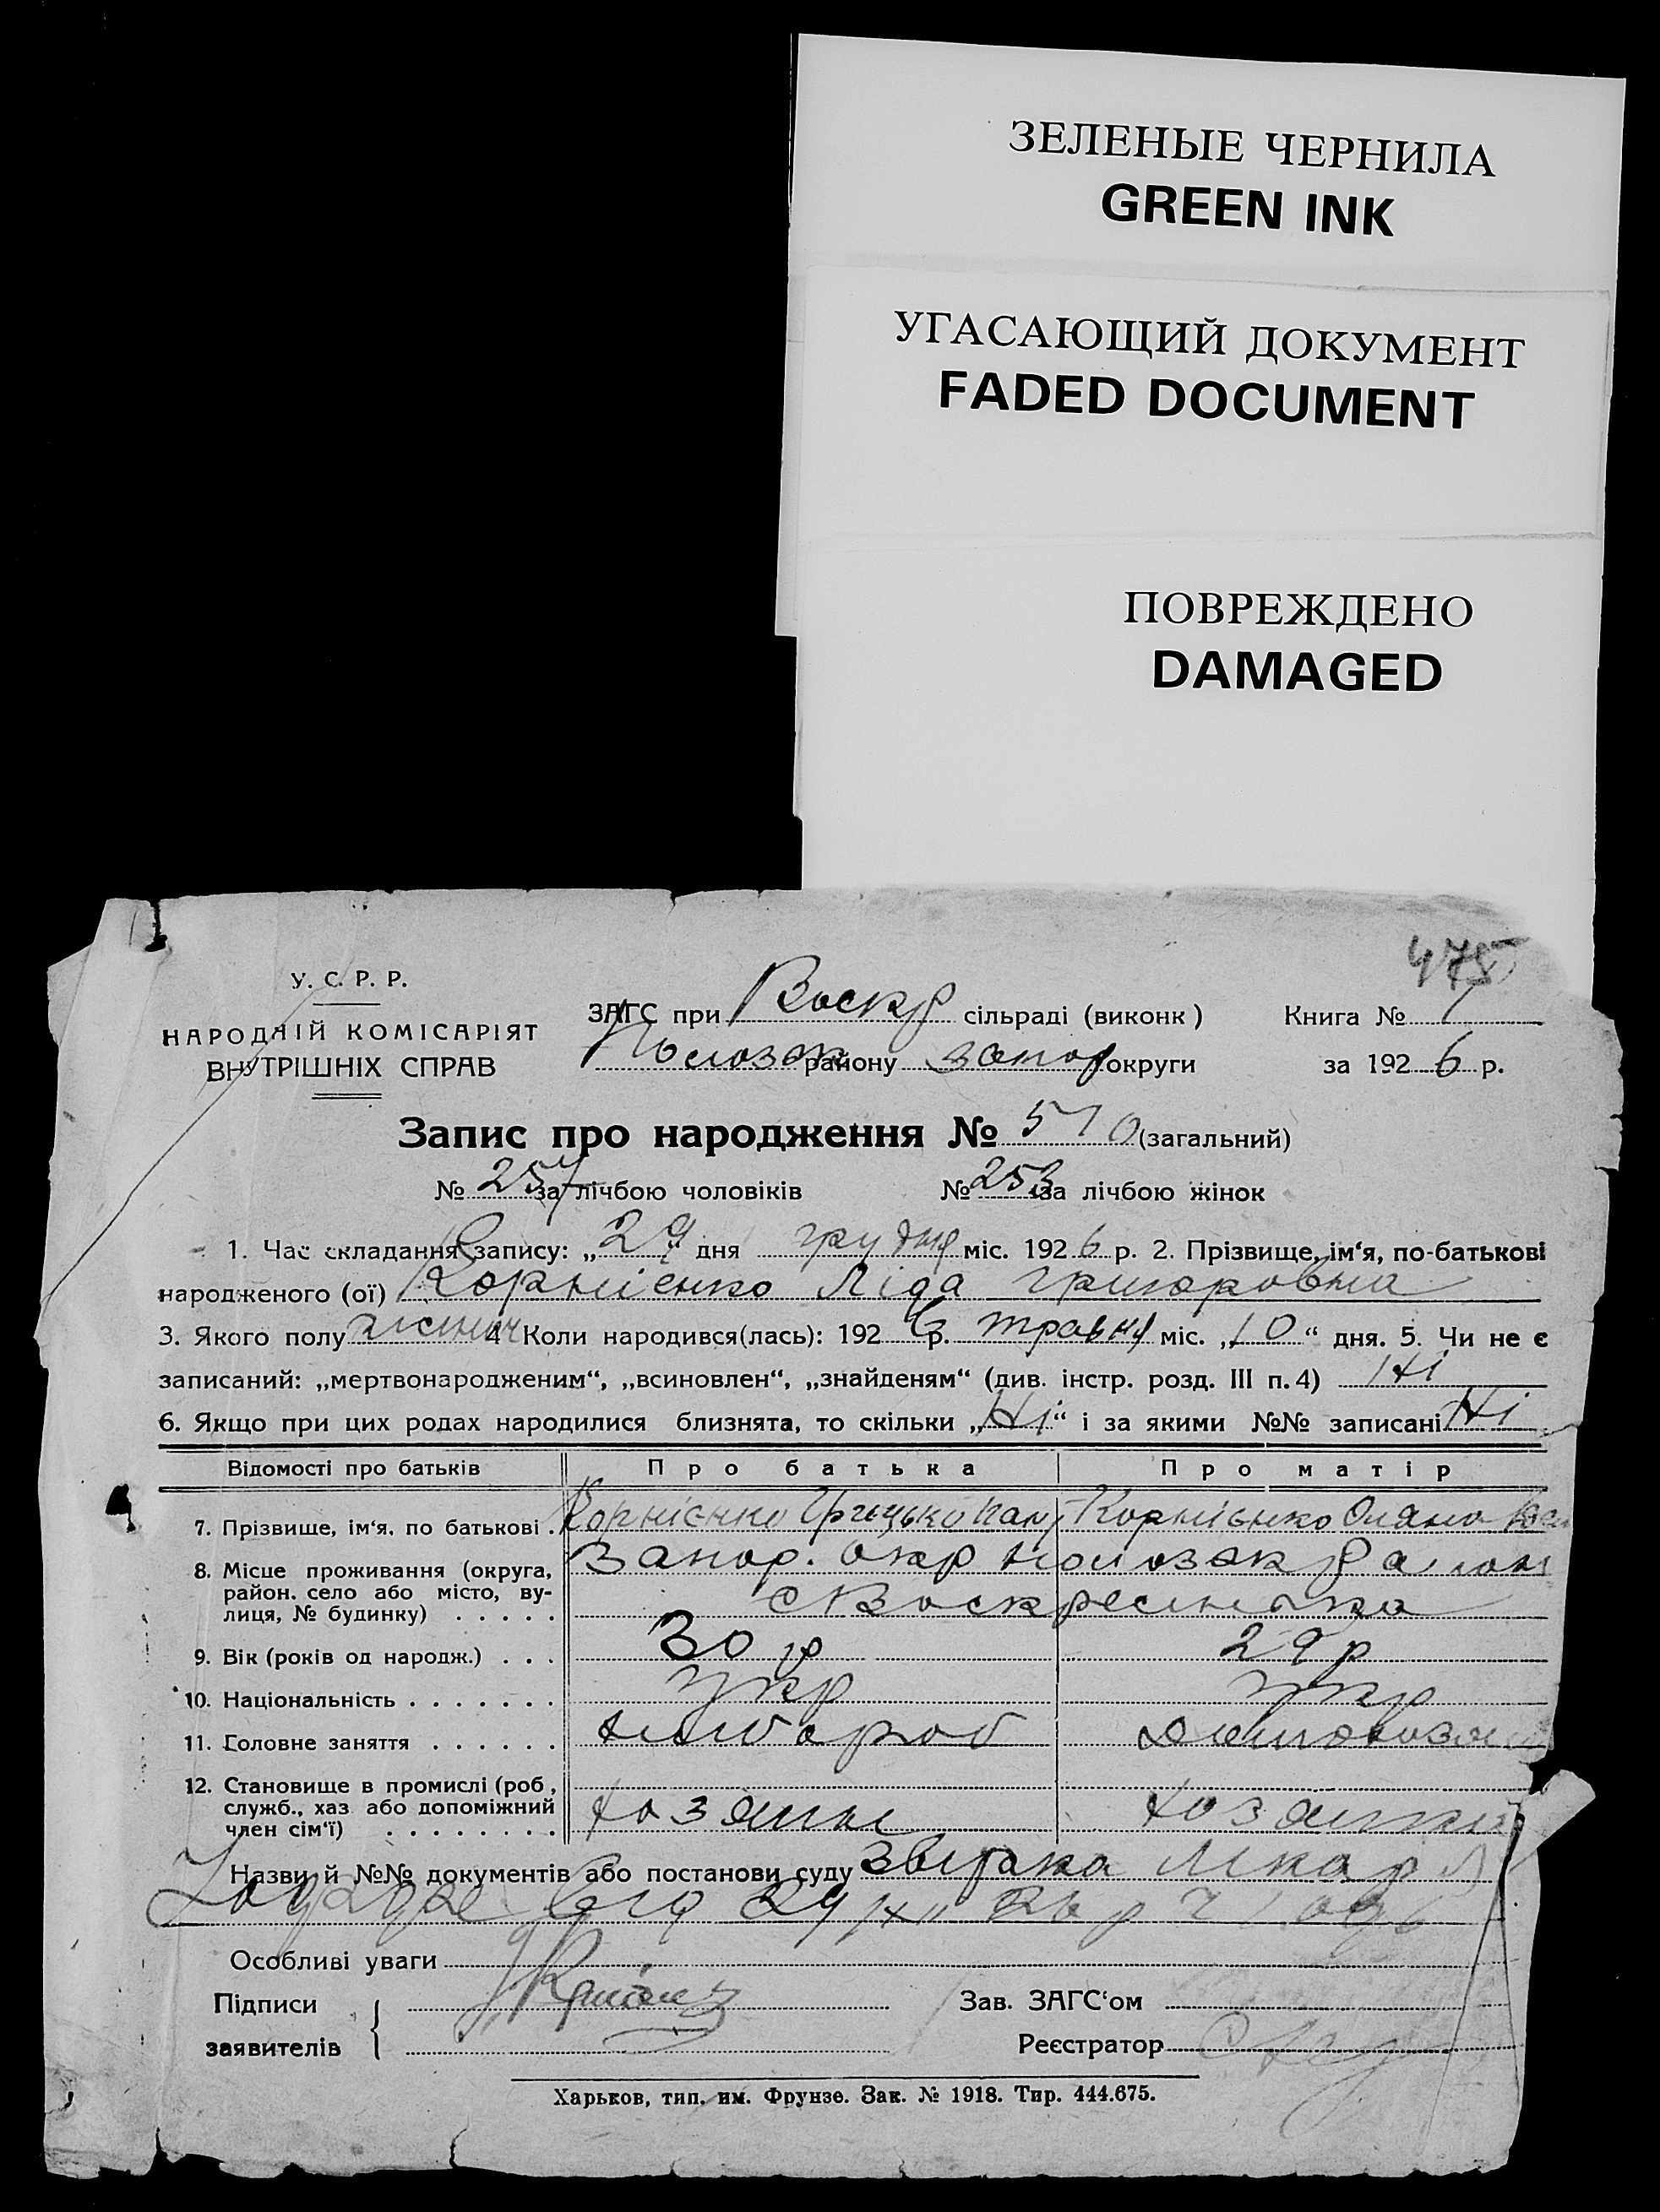 ЗЕЛЕНЫЕ ЧЕРНИЛА
GREEN INK
УГАСАЮЩИЙ ДОКУМЕНТ
FADED DOCUMENT
ПОВРЕЖДЕНО
DAMAGED
475
У. С. Р. Р.
НАРОДНІЙ КОМІСАРІЯТ
ВНУТРІШНІХ СПРАВ
ЗАГС при Воскр сільраді (виконк) Книга № 1
Пологок району Запор округи за 1926 р.
Запис про народження № 510 (загальний)
№ 257 за лічбою чоловіків № 253 за лічбою жінок
1. Час складання запису: „29“ дня грудня міс. 1926 р. 2. Прізвище, ім‘я, по-батькові
народженого (ої) Корнієнко Ліда Григоровна
3. Якого полу жіноч 4 Коли народився(лась): 1926 р. травня міс. „10“ дня. 5. Чи не є
записаний: „мертвонародженим“, „всиновлен“, „знайденям“ (див. інстр. розд. III п. 4) Ні
6. Якщо при цих родах народилися близнята, то скільки „Ні“ і за якими №№ записані Ні
Відомості про батьків Про батька Про матір
7. Прізвище, ім‘я, по батькові . Корнієнко Грицько Корнієнко Оляна
8. Місце проживання (округа, район. село або місто, ву-лиця, № будинку) . . . . . Запор. окр район
с Воскресенька
9. Вік (років од народж.) . . . 30 р 29 р
10. Національність . . . . . . . укр укр
11. Головне заняття . . . . . . хлібороб
12. Становище в промислі (роб.,
служб., хаз або допоміжний
член сім‘ї) . . . . . . . . хозяин хозяйка
Назви й №№ документів або постанови суду лікаря
від 29/XII 26 р
Особливі уваги
Підписи
заявителів
Зав. ЗАГС‘ом
Реєстратор
Харьков, тип. им. Фрунзе. Зак. № 1918. Тир. 444.675.